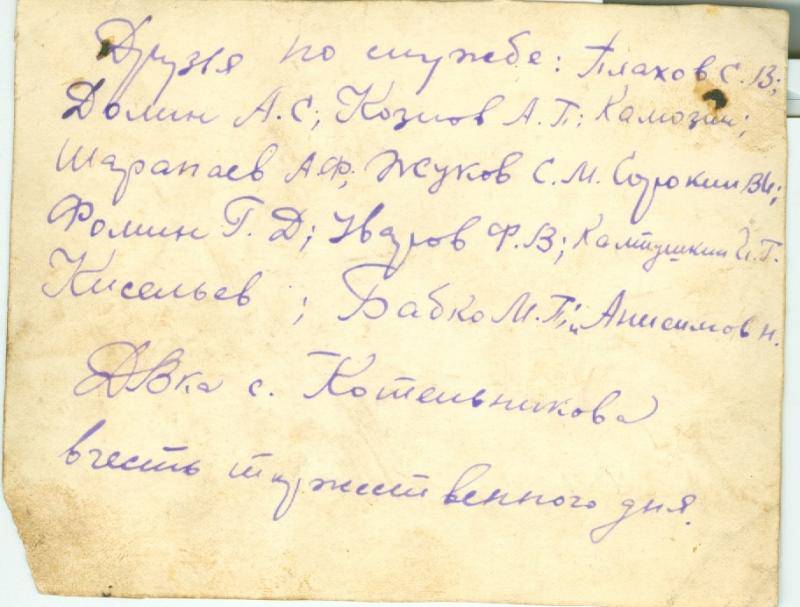 Друзья по службе: Плахов С.В;
Долин А.С; Козлов А.П; Камозин;
Шарапаев А.Ф; Жуков С.М. Сорокин В.И;
Фомин Г.Д; Уваров Ф.В; Калтушкин И.Г.
Кисельев ; Бабко М.П; и Анисимов н.
ДВка с. Котельникова
в честь торжественного дня.